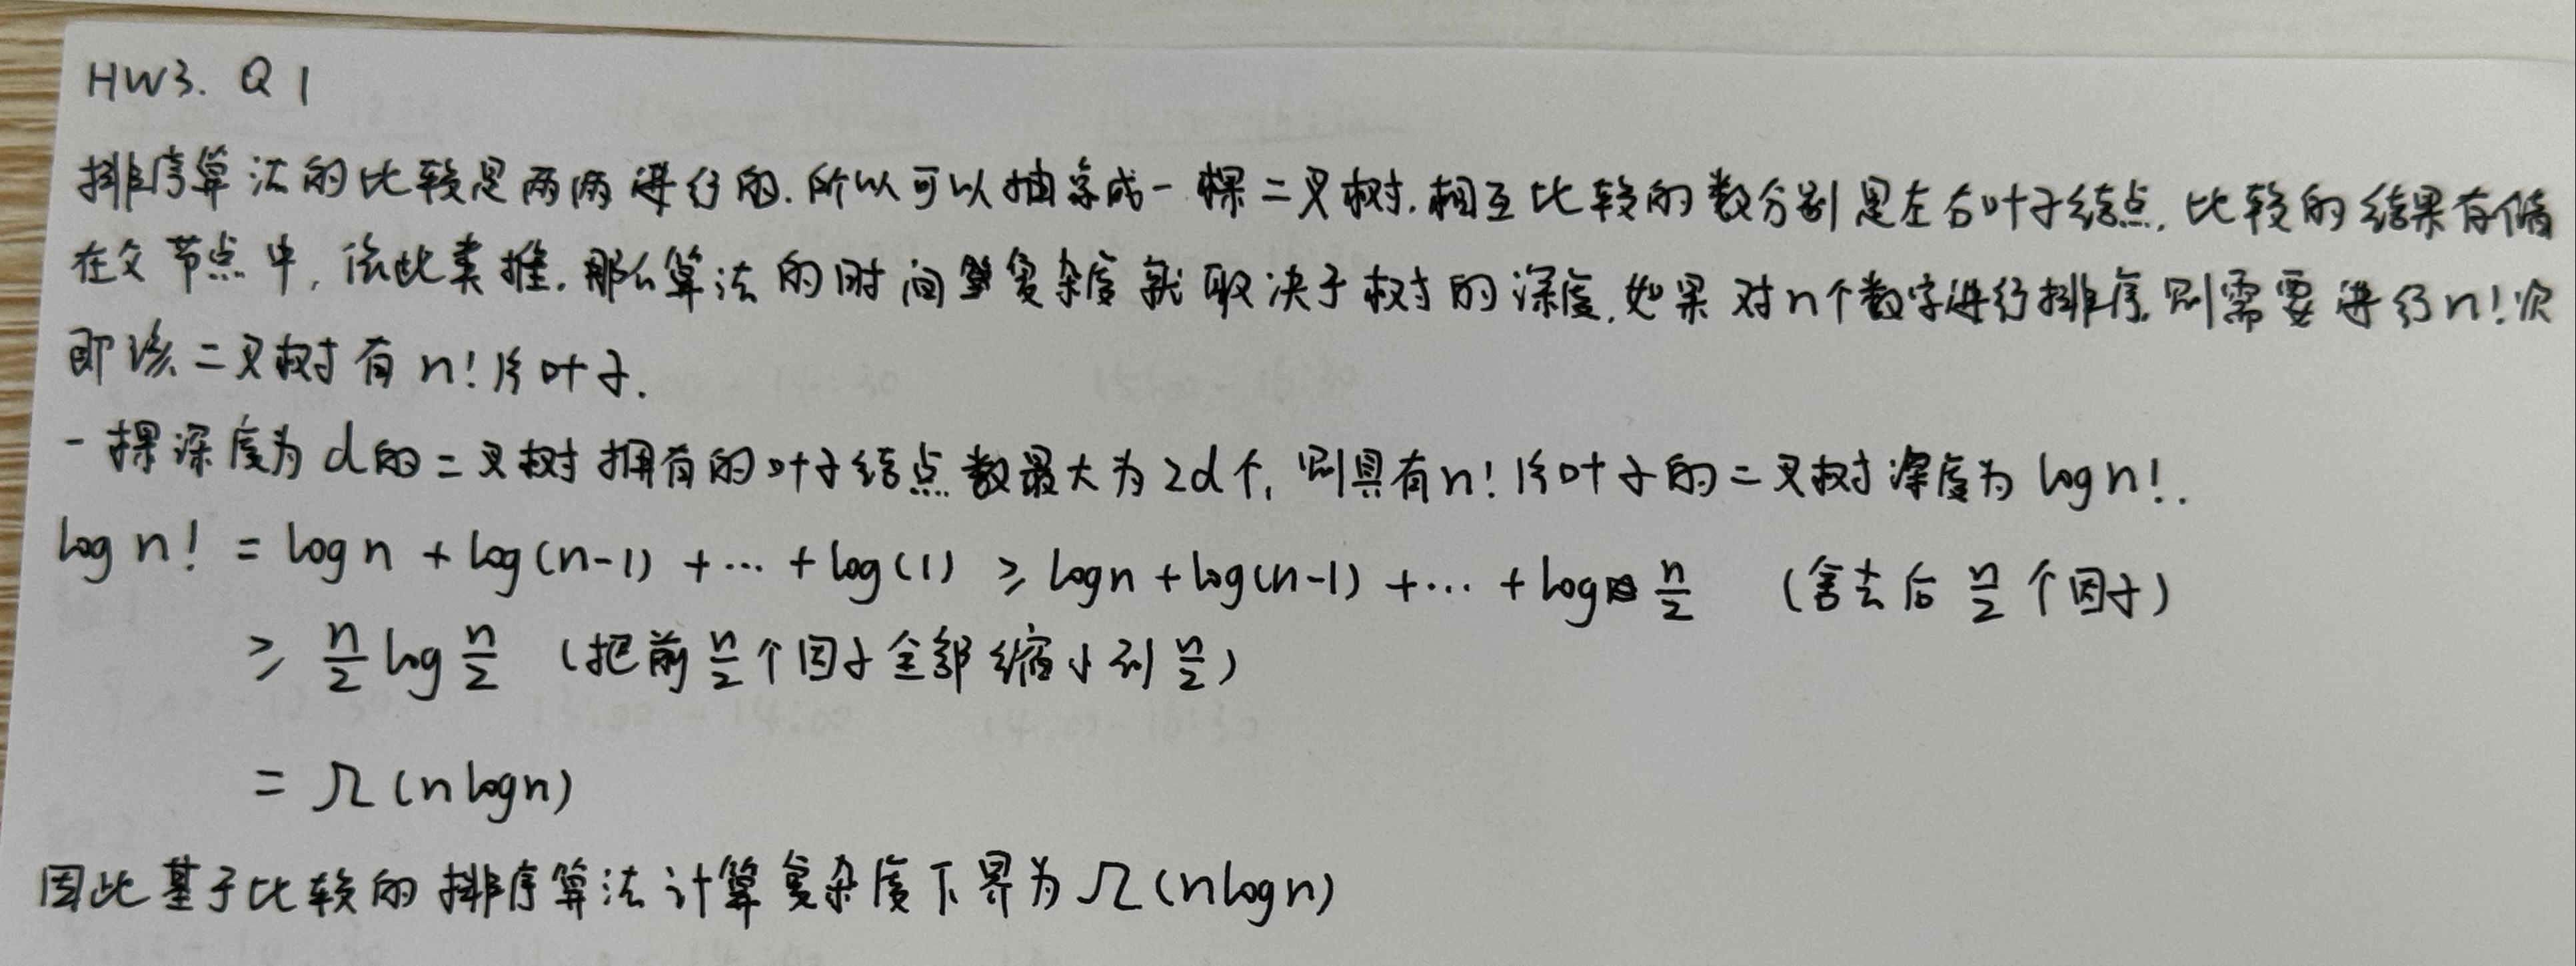 HW3. Q1
排序算法的比较是两两进行的.所以可以抽象成一棵二叉树.相互比较的数分别是左右叶子结点,比较的结果存储
在父节点中,依此类推.那么算法的时间复杂度就取决于树的深度.如果对n个数字进行排序,则需要进行n!次
即该二叉树有n!片叶子.
一棵深度为d的二叉树拥有的叶子结点数最大为2d个,则具有n!片叶子的二叉树深度为logn!.
log n! = log n + log(n-1) + ... + log(1) ≥ logn + log(n-1) + ... + log n/2 (舍去后 n/2 个因子)
≥ n/2 log n/2 (把前 n/2 个因子全部缩小到 n/2)
= Ω(nlogn)
因此基于比较的排序算法计算复杂度下界为Ω(nlogn)